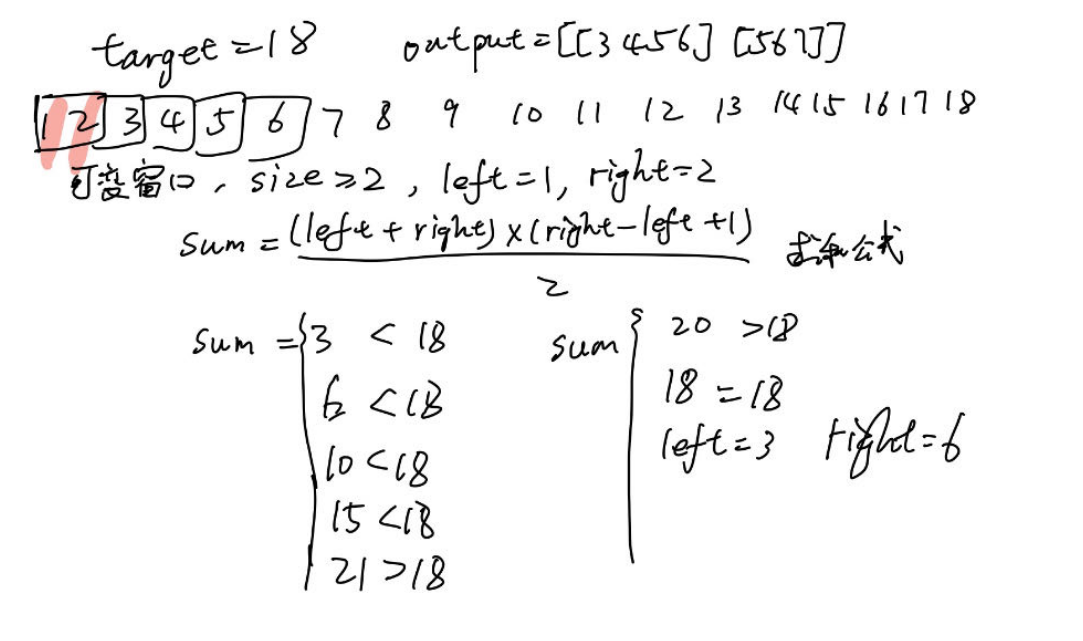 target=18 output=[[3 4 5 6] [5 6 7]]
1 2 3 4 5 6 7 8 9 10 11 12 13 14 15 16 17 18
可变窗口, size≥2, left=1, right=2
sum = (left + right) × (right - left + 1) 求和公式
2
sum = { 3 < 18 sum { 20 >18
6 <18 18 = 18
10 <18 left=3 right=6
15 <18
21 >18